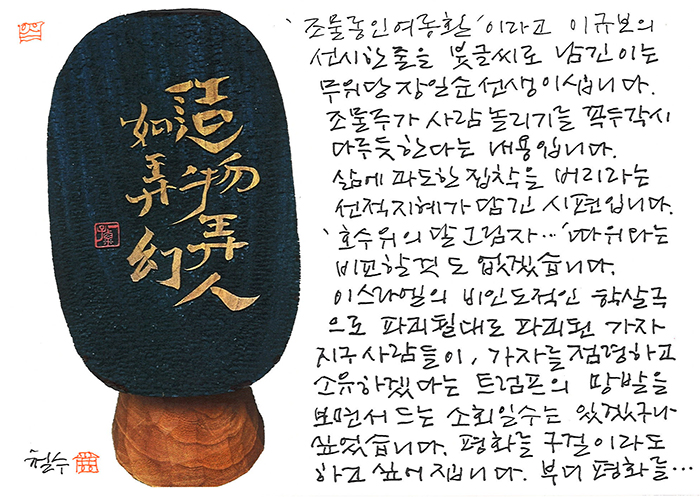 造物弄人
如弄幻
'조물롱인여롱환'이라고 이규보의
선시 한 줄을 붓글씨로 남긴 이는
무위당 장일순 선생이십니다.
조물주가 사람 놀리기를 꼭두각시
다루듯 한다는 내용입니다.
삶에 과도한 집착을 버리라는
선적 지혜가 담긴 시편입니다.
'호수 위의 달그림자…' 따위와는
비교할 것도 없겠습니다.
이스라엘의 비인도적인 학살극
으로 파괴될대로 파괴된 가자
지구 사람들이, 가자를 점령하고
소유하겠다는 트럼프의 망발을
보면서 드는 소회일 수는 있겠구나
싶었습니다. 평화를 구걸이라도
하고 싶어집니다. 부디 평화를…
철수